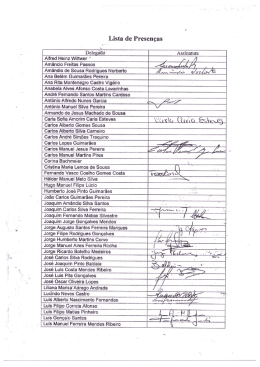 Lista de Presenças
Delegado Assinatura
Alfred Heinz Wittwer
Amâncio Freitas Passos
Amândio de Sousa Rodrigues Norberto
Ana Belém Guimarães Pereira
Ana Rita Montenegro Castro Vigário
Anabela Alves Afonso Costa Lavarinhas
André Fernando Santos Martins Cardoso
António Alfredo Nunes Garcia
António Manuel Silva Pereira
Armando de Jesus Machado de Sousa
Carla Sofia Amorim Faria Esteves
Carlos Alberto Gomes Sousa
Carlos Alberto Silva Carneiro
Carlos André Simões Traquino
Carlos Lopes Guimarães
Carlos Manuel Jesus Pereira
Carlos Manuel Martins Pires
Carina Bachmeier
Cristina Maria Lemos de Sousa
Fernando Vasco Coelho Gomes Costa
Hélder Manuel Melo Silva
Hugo Manuel Filipe Lúcio
Humberto José Pinto Guimarães
João Carlos Guimarães Pereira
Joaquim Armindo Silva Santos
Joaquim Carlos Silva Ferreira
Joaquim Fernando Matias Silvestre
Joaquim Jorge Gonçalves Mendes
Jorge Augusto Santos Ferreira Marques
Jorge Filipe Rodrigues Gonçalves
Jorge Humberto Martins Corvo
Jorge Manuel Aires Ferreira Rocha
Jorge Ricardo Botelho Medeiros
José Carlos Silva Rodrigues
José Joaquim Pinto Batista
José Luis Costa Mendes Ribeiro
José Luis Pinto Costa
José Óscar Oliveira Lopes
Liliana Marisa Adrego Andrade
Lucinda Neves Castro
Luis Alberto Nascimento Fernandes
Luis Filipe Correia Afonso
Luis Filipe Matias Pinheiro
Luis Gonçalo Santos
Luis Manuel Ferreira Mendes Ribeiro